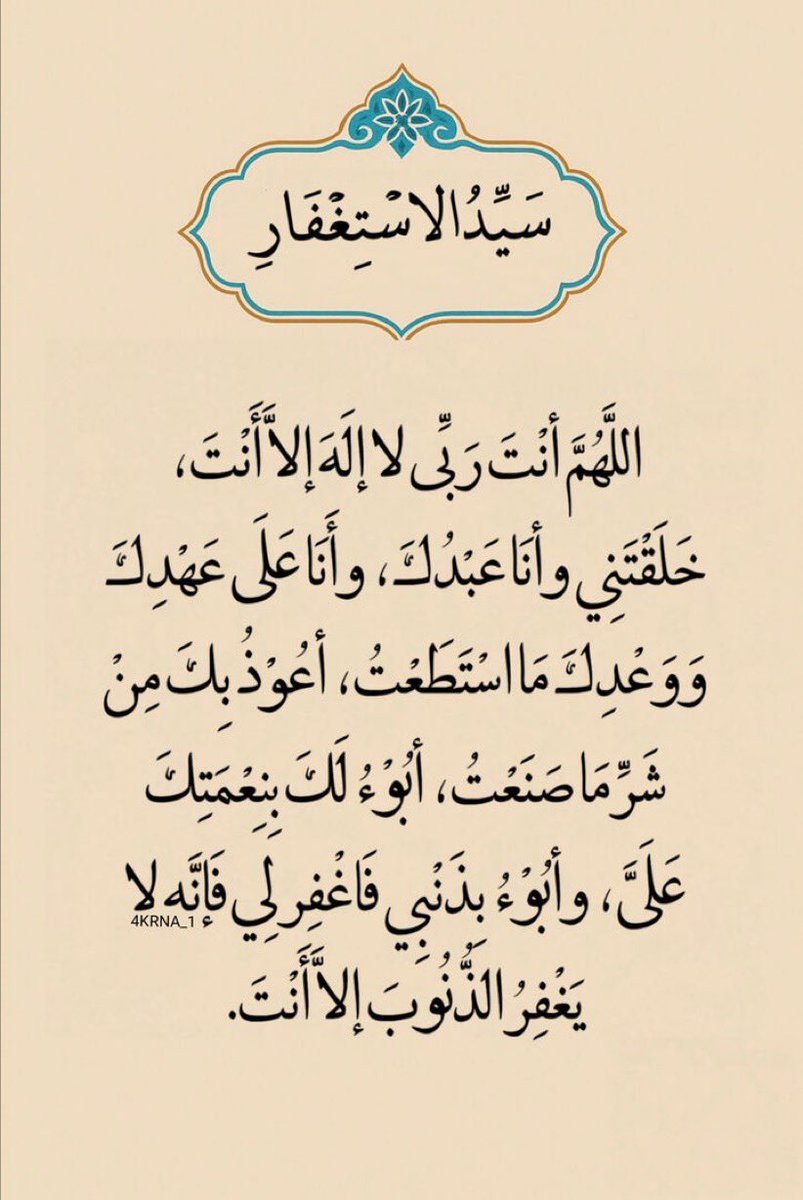 سَيِّدُ الاسْتِغْفَارِ
اللَّهُمَّ أنْتَ رَبِّى لا إلَهَ إلاَّ أَنْتَ،
خَلَقْتَنِي وأنَا عَبْدُكَ، وأَنَا عَلَى عَهْدِكَ
وَوَعْدِكَ مَا اسْتَطَعْتُ، أعُوْذُ بِكَ مِنْ
شَرِّ مَا صَنَعْتُ، أبُوْءُ لَكَ بِنِعْمَتِكَ
عَلَىَّ، وأبُوْءُ بِذَنْبِي فَاغْفِر لِي فَإنَّه لا
4KRNA_1
يَغْفِرُ الذُّنُوبَ إلاَّ أَنْتَ.